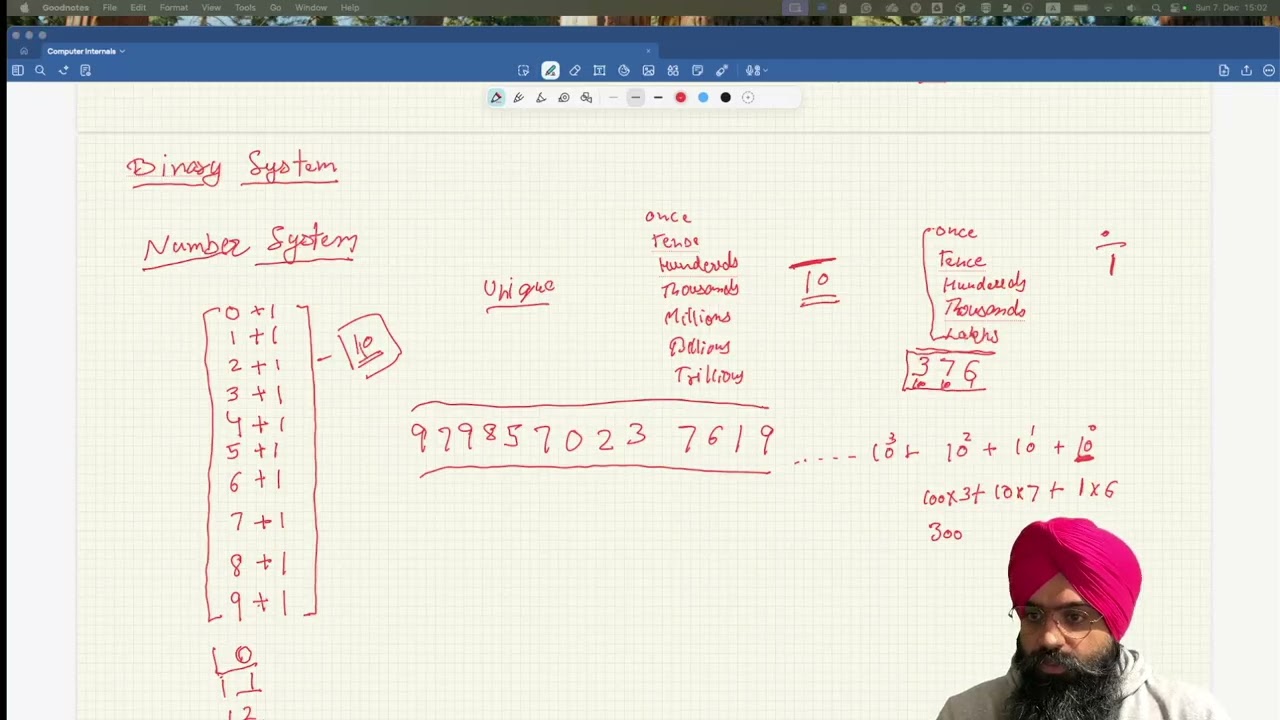 Goodnotes File Edit Format View Tools Go Window Help
Sun 7. Dec 15:02
Computer Internals
Binary System
Number System
0 + 1
1 + 1
2 + 1
3 + 1
4 + 1
5 + 1
6 + 1
7 + 1
8 + 1
9 + 1
10
10
11
12
Unique
once
Tense
Hundereds
Thousands
Millions
Billions
Trillions
979857023 7619
10
once
Tence
Hundereds
Thousands
Lakhs
376
10 10
1
..... 10³ + 10² + 10¹ + 10⁰
100x3+ 10x7 + 1x6
300